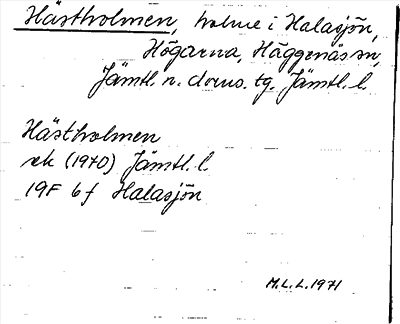 Hästholmen, holme i Halasjön,
Högarna, Häggenås sn,
Jämtl. n. doms. tg. Jämtl. l.
Hästholmen
ek (1970) Jämtl. l.
19F 6f Halasjön
M.L.L. 1971